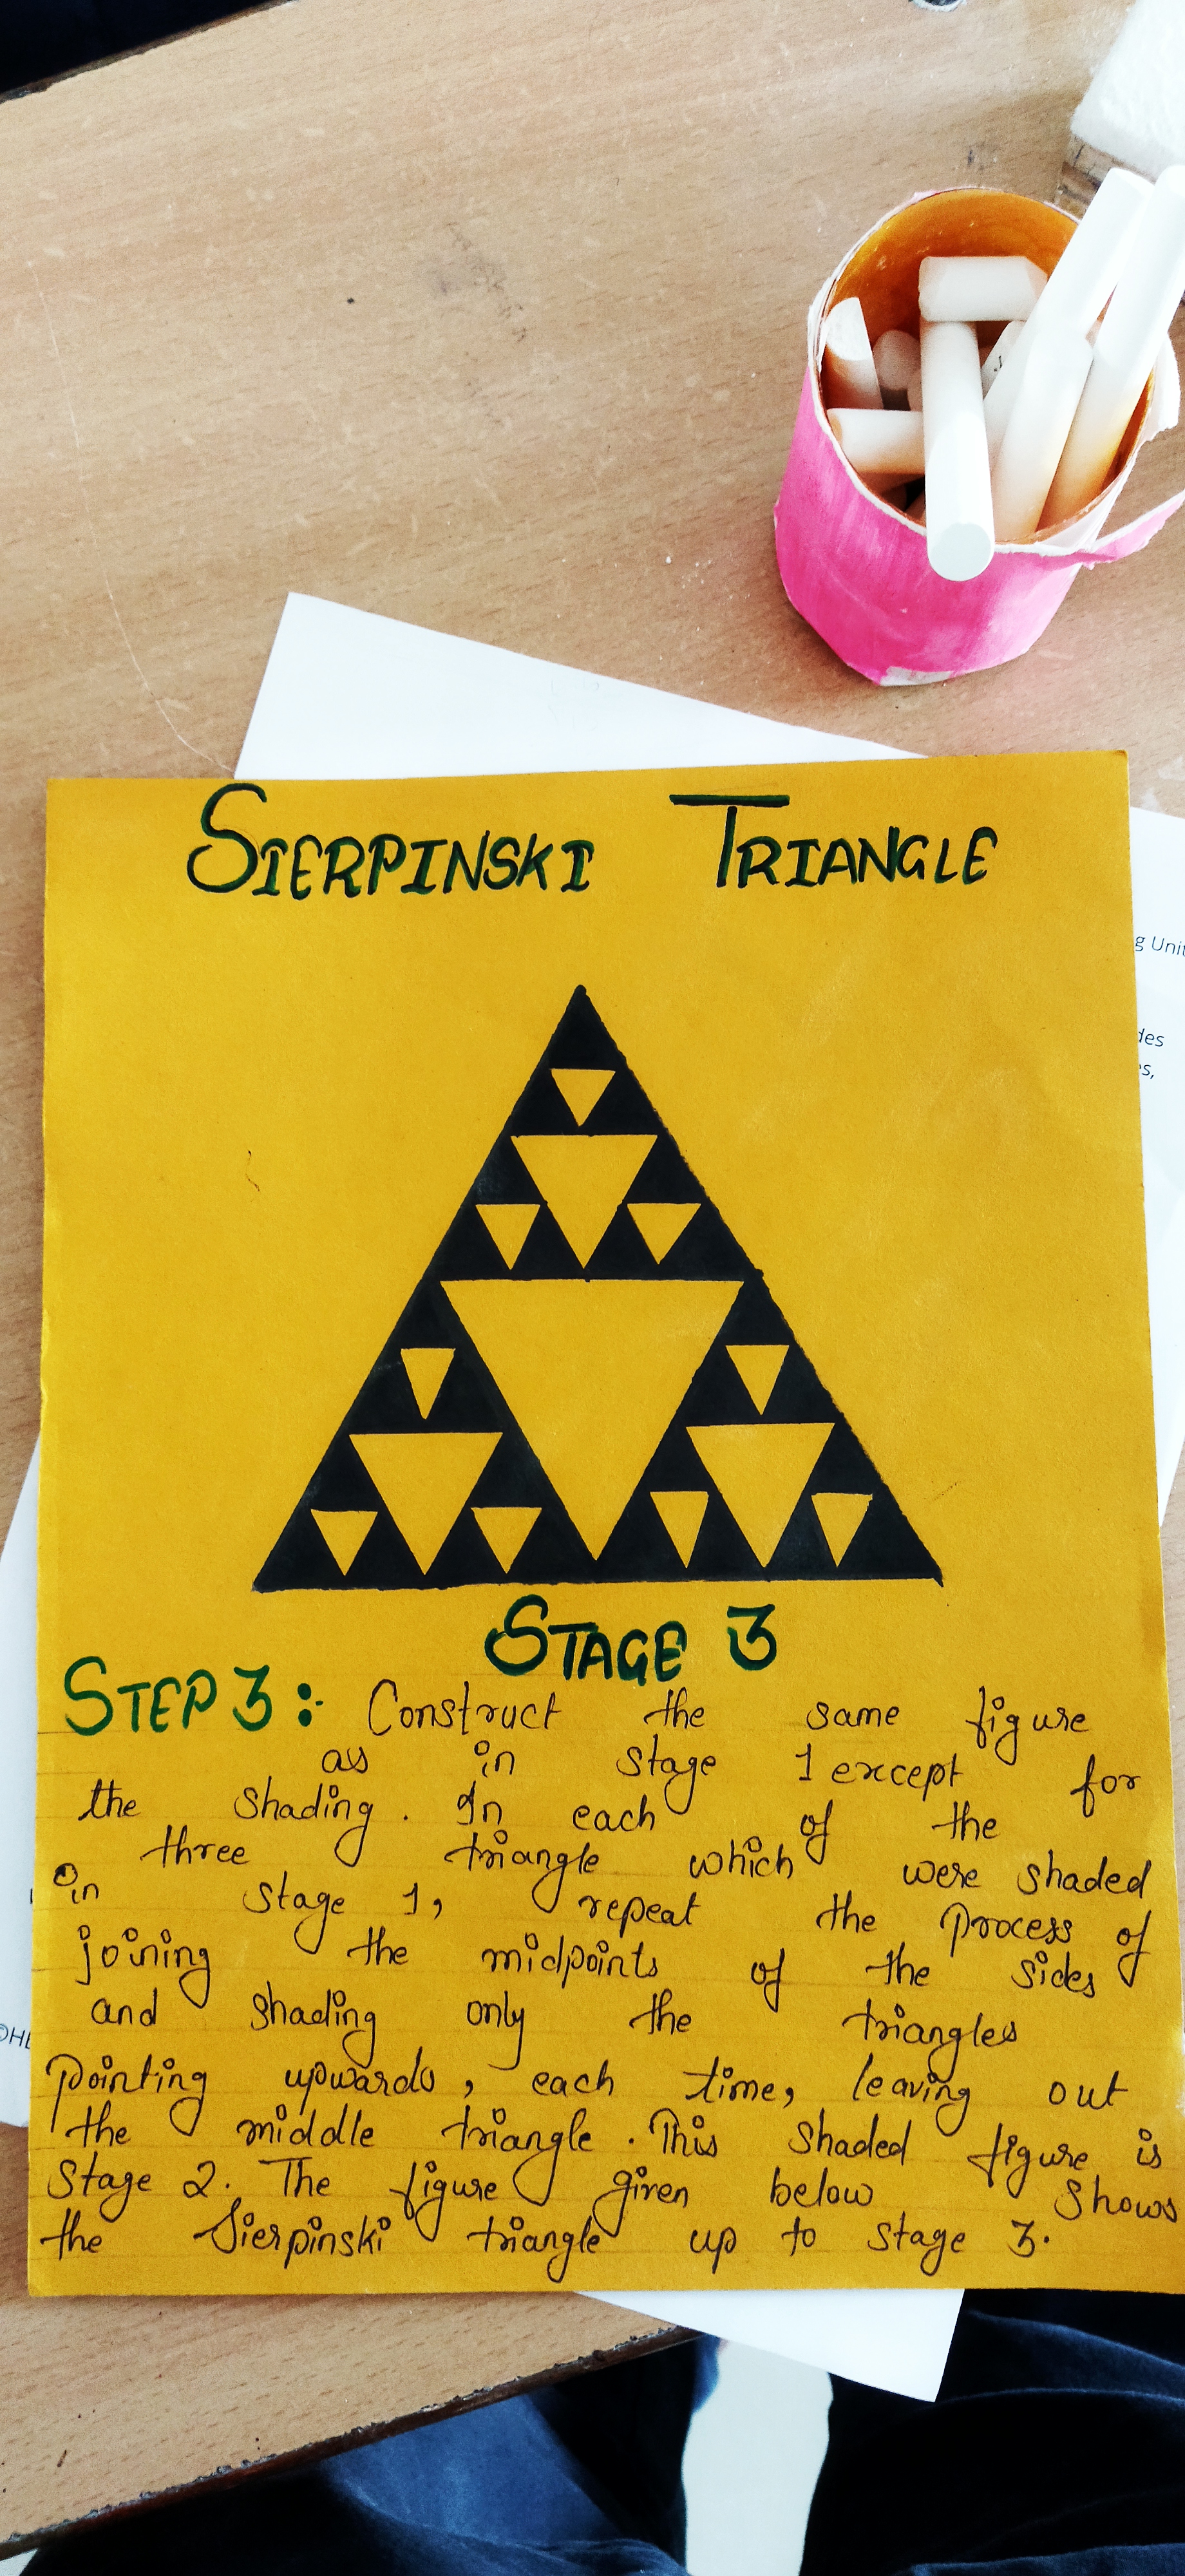 SIERPINSKI TRIANGLE
g Unit
des
s,
STAGE 3
STEP 3: Construct the same figure
as in stage 1 except for
the shading. In each of the
three triangle which were shaded
in stage 1, repeat the process of
joining the midpoints of the sides
and shading only the triangles
pointing upwards, each time, leaving out
the middle triangle. This shaded figure is
Stage 2. The figure given below shows
the Sierpinski triangle up to stage 3.